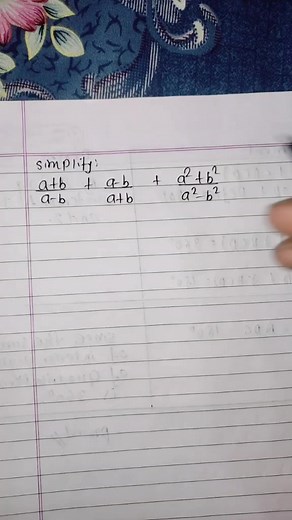 simplify:
a+b/a-b + a-b/a+b + a²+b²/a²-b²